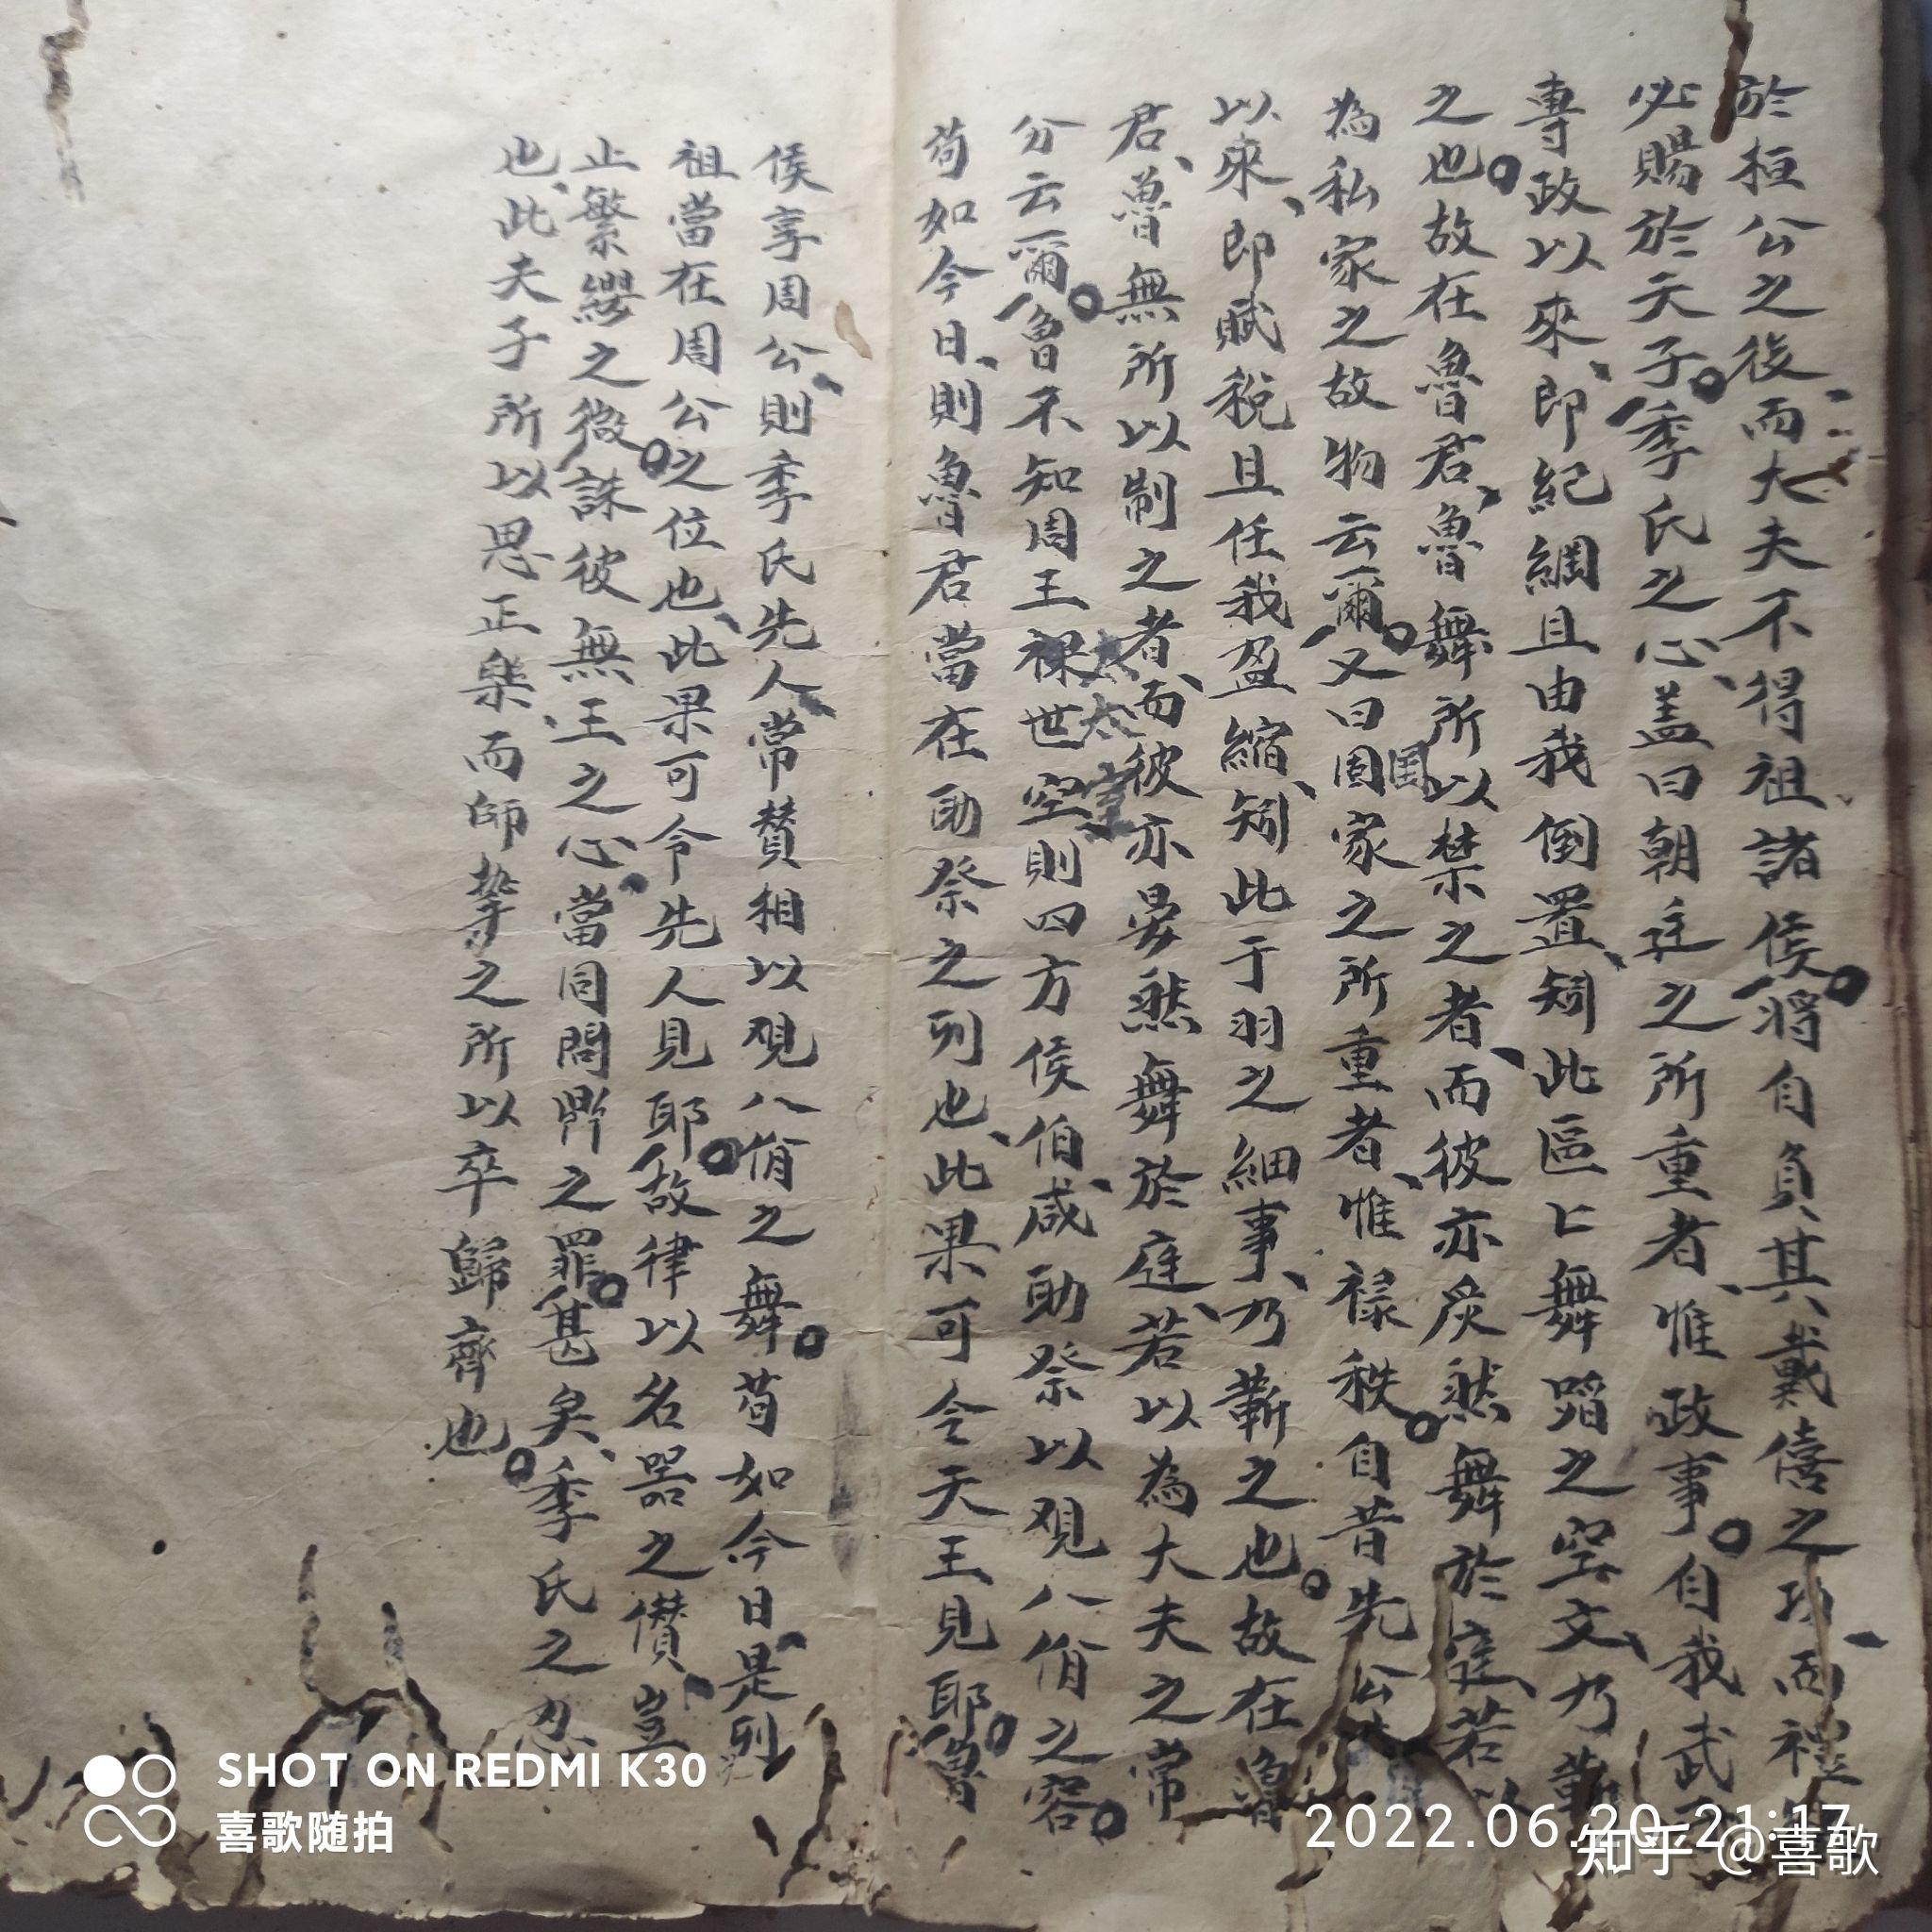 於桓公之後而大夫不得祖諸侯將自負其戴僖之功而禮
必賜於天子季氏之心蓋曰朝廷之所重者惟政事自我武
專政以來即紀綱且由我倒置矧此區匕舞蹈之空文乃蘄
之也故在魯君魯舞所以禁之者而彼亦炭然舞於庭若以
為私家之故物云爾又曰國家之所重者惟祿秩自昔先公
国
以來即賦稅且任我盈縮矧此于羽之細事乃蘄之也故在魯
君魯無所以制之者而彼亦晏然舞於庭若以為大夫之常
分云爾魯不知周王祼世空則四方侯伯咸助祭以覌八佾之容
太太室
苟如今日則魯君當在助祭之列也此果可令天王見耶魯
侯享周公則季氏先人常贊相以覌八佾之舞苟如今日是列
祖當在周公之位也此果可令先人見耶故律以名器之僣豈
止繁纓之微誅彼無王之心當同問鼎之罪甚矣季氏之忍
也此夫子所以思正樂而師摯之所以卒歸齊也
SHOT ON REDMI K30
喜歌随拍
2022.06.20 21:17
知乎 @喜歌